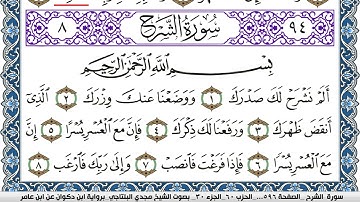 ٩٤ سُورَةُ الشَّرْحِ ٨
بِسْمِ اللَّهِ الرَّحْمَٰنِ الرَّحِيمِ
أَلَمْ نَشْرَحْ لَكَ صَدْرَكَ ١ وَوَضَعْنَا عَنكَ وِزْرَكَ ٢ الَّذِي
أَنقَضَ ظَهْرَكَ ٣ وَرَفَعْنَا لَكَ ذِكْرَكَ ٤ فَإِنَّ مَعَ الْعُسْرِ يُسْرًا ٥ إِنَّ
مَعَ الْعُسْرِ يُسْرًا ٦ فَإِذَا فَرَغْتَ فَانصَبْ ٧ وَإِلَىٰ رَبِّكَ فَارْغَب ٨
سورة الشرح_الصفحة ٥٩٦_ الحزب ٦٠_الجزء ٣٠_ بصوت الشيخ مجدي البلتاجي_برواية ابن ذكوان عن ابن عامر